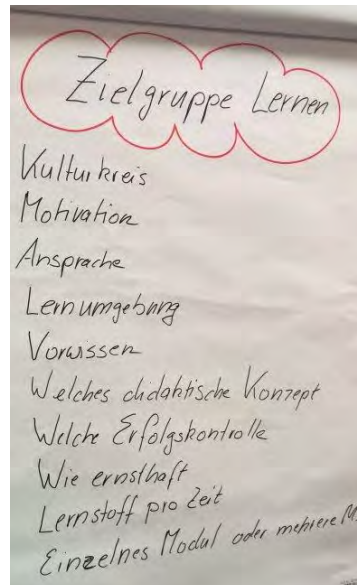 Zielgruppe Lernen
Kulturkreis
Motivation
Ansprache
Lernumgebung
Vorwissen
Welches didaktische Konzept
Welche Erfolgskontrolle
Wie ernsthaft
Lernstoff pro Zeit
Einzelnes Modul oder mehrere M